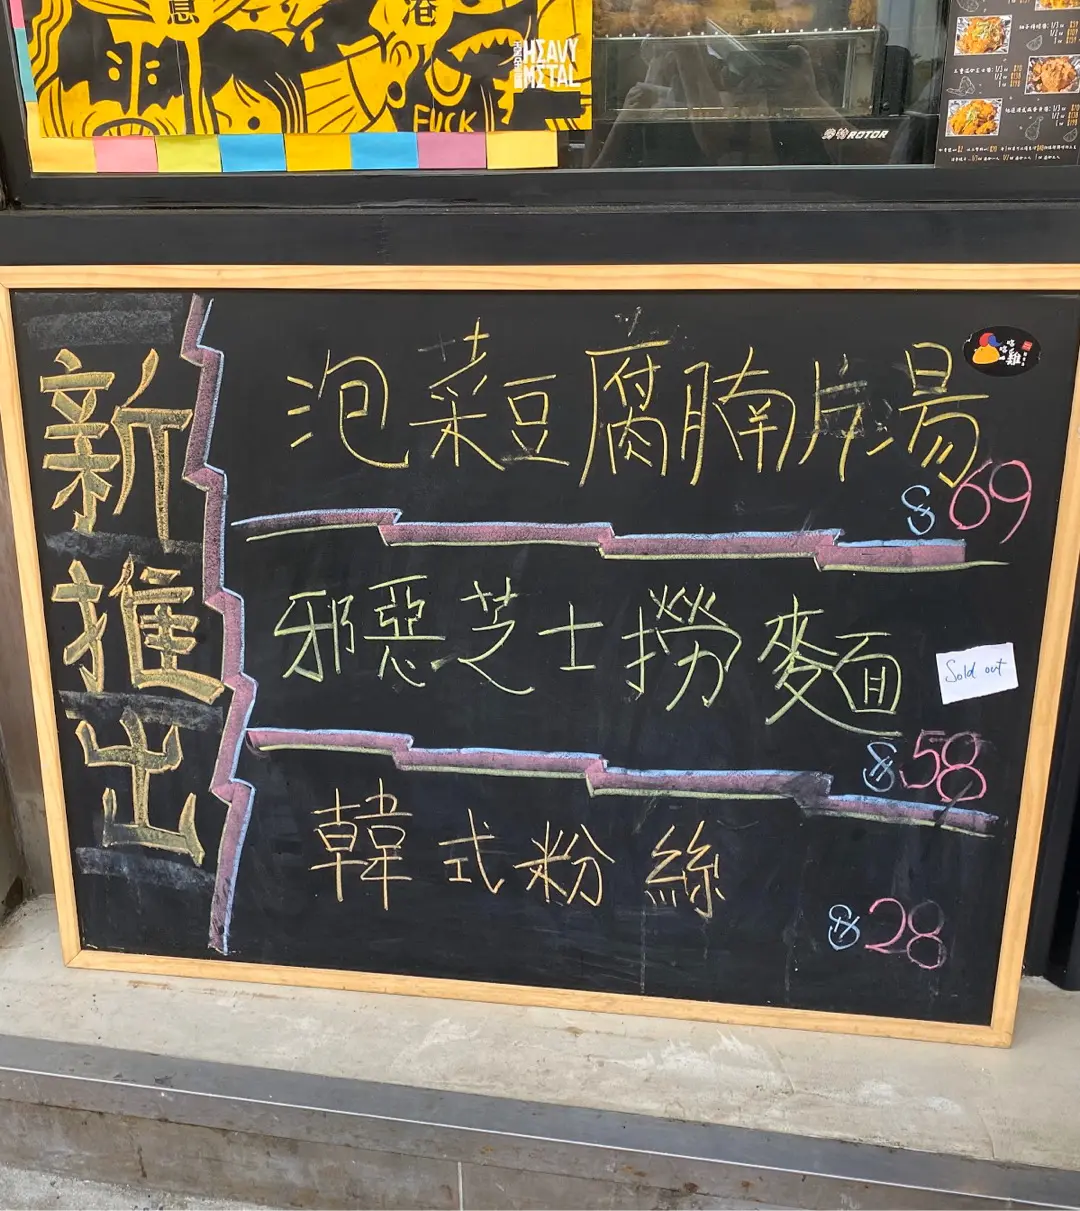 息
港
HEAVY
METAL
FUCK
ROTOR
新推出
泡菜豆腐腩片湯
$69
邪惡芝士撈麵
Sold out
$58
韓式粉絲
$28